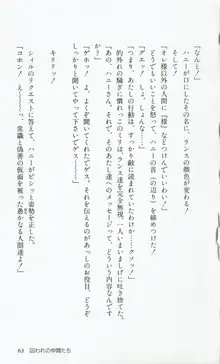 「なんと！」
ハニーが口にしたその名に、ランスの顔色が変わる！
そして！
「オレ様以外の人間に『様』などつけてんじゃねぇ！」
とてもどうでもいい事で怒って、ハニーの首（の辺り）を締めつけた！
「グエッ！しょ、しょんな……」
「つまり、あたしの行動は、すべて読まれていたわけか……クソッ！」
的外れの騒ぎに慣れっこのミリは、ランス達を完全無視、一人いまいましげに吐き捨てた。
「で、ハニーさん、そのあたし達へのメッセージって、どういう内容なんですか？」
「ゲホッ！よ、よくぞ聞いてくれたでゲス、それを伝えるのがあっしのお役目、どうぞ
しっかりと聞いて下さいでゲス――」
キリリッ！
シィルのリクエストに答えて、ハニーがピシッと姿勢を正した。
「コホン！え〜〜〜っ、常識と偽善の仮面を被った愚かなる人間達よ！
63 囚われの仲間たち